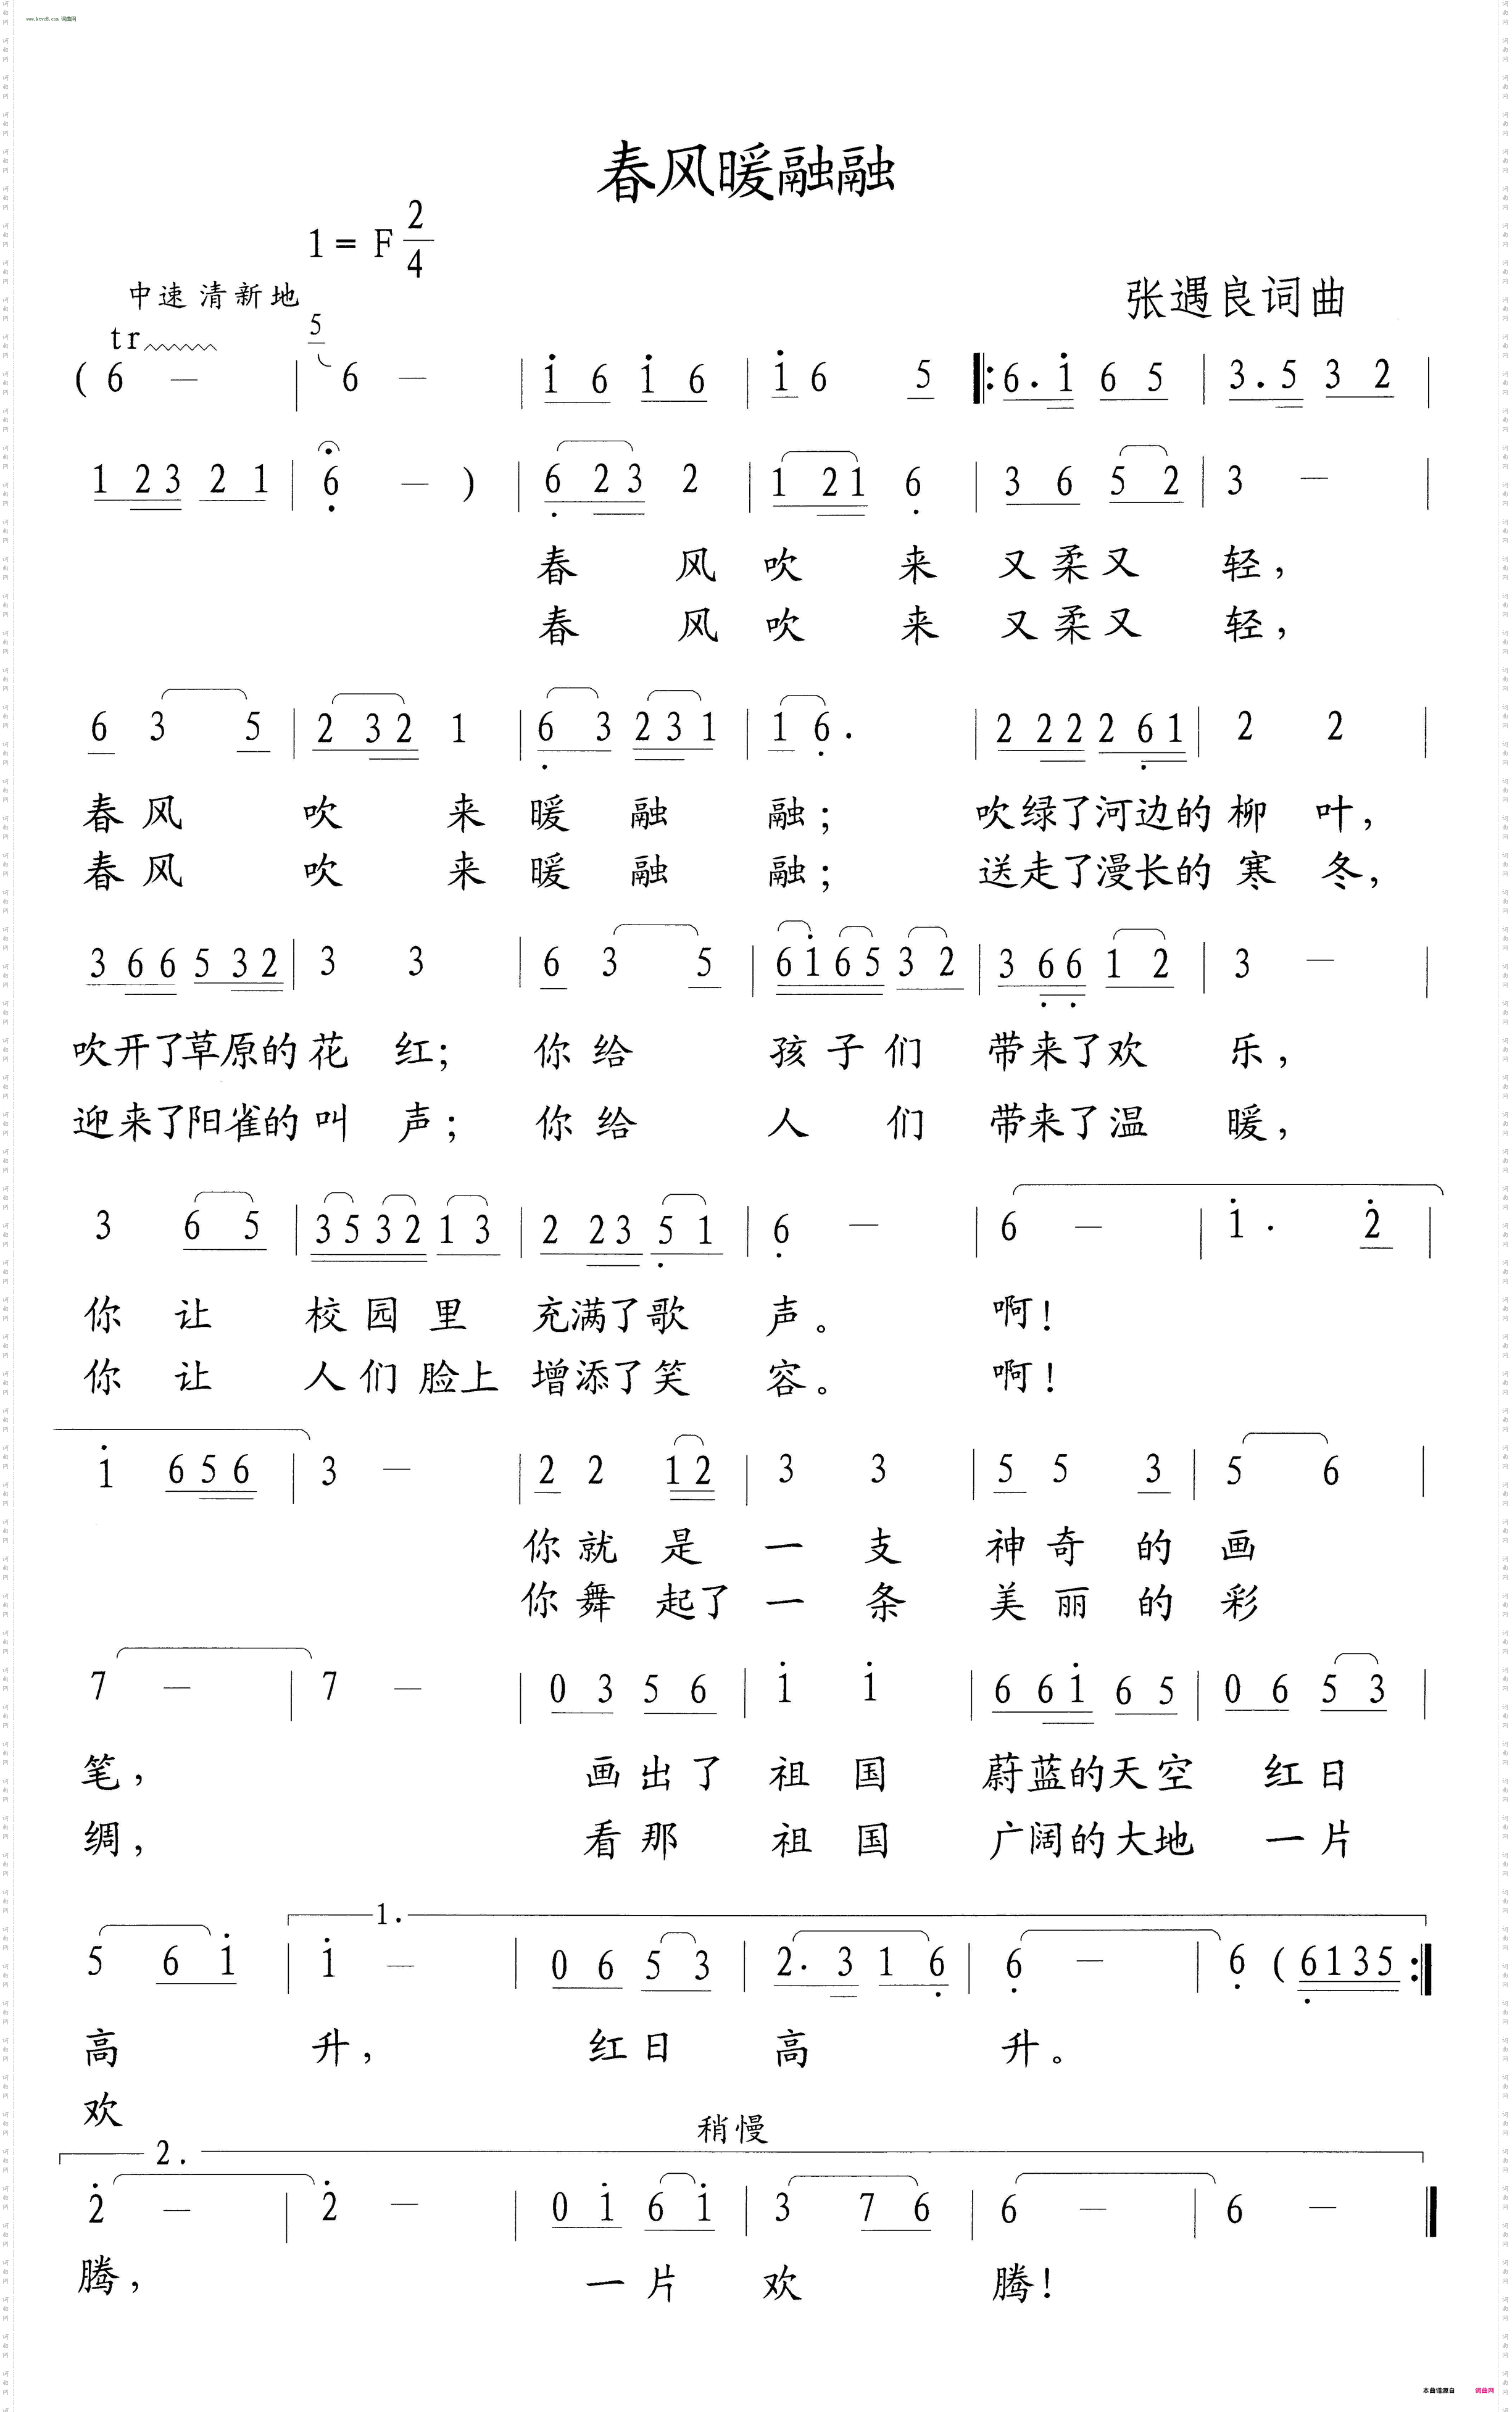 www.ktvc8.com 词曲网
春风暖融融
1 = F 2/4
中速 清新地
张遇良词曲
tr
( 6 — | 5 6 — | i 6 i 6 | i 6 5 |: 6. i 6 5 | 3. 5 3 2 |
1 2 3 2 1 | 6 — ) | 6 2 3 2 | 1 2 1 6 | 3 6 5 2 | 3 — |
春 风 吹 来 又 柔 又 轻，
春 风 吹 来 又 柔 又 轻，
6 3 5 | 2 3 2 1 | 6 3 2 3 1 | 1 6. | 2 2 2 2 6 1 | 2 2 |
春 风 吹 来 暖 融 融； 吹绿了河边的 柳 叶，
春 风 吹 来 暖 融 融； 送走了漫长的 寒 冬，
3 6 6 5 3 2 | 3 3 | 6 3 5 | 6 i 6 5 3 2 | 3 6 6 1 2 | 3 — |
吹开了草原的 花 红； 你 给 孩 子 们 带来了欢 乐，
迎来了阳雀的 叫 声； 你 给 人 们 带来了温 暖，
3 6 5 | 3 5 3 2 1 3 | 2 2 3 5 1 | 6 — | 6 — | i . 2 |
你 让 校 园 里 充满了歌 声。 啊！
你 让 人 们 脸上 增添了笑 容。 啊！
i 6 5 6 | 3 — | 2 2 1 2 | 3 3 | 5 5 3 | 5 6 |
你 就 是 一 支 神 奇 的 画
你 舞 起了 一 条 美 丽 的 彩
7 — | 7 — | 0 3 5 6 | i i | 6 6 i 6 5 | 0 6 5 3 |
笔， 画 出 了 祖 国 蔚蓝的天空 红日
绸， 看 那 祖 国 广阔的大地 一片
1.
5 6 i | i — | 0 6 5 3 | 2. 3 1 6 | 6 — | 6 ( 6 1 3 5 :|
高 升， 红日 高 升。
欢
稍慢
2.
2 — | 2 — | 0 i 6 i | 3 7 6 | 6 — | 6 — ‖
腾， 一 片 欢 腾！
本曲谱原自 词曲网